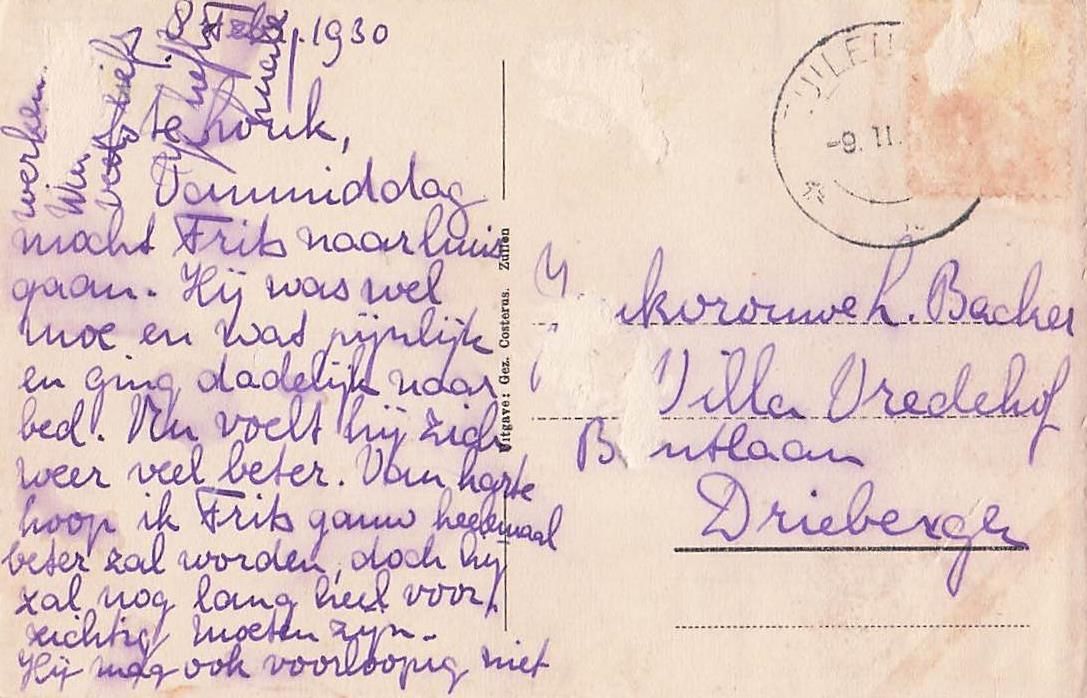 8 Feb. 1930
Vanmiddag
mocht Frits naar huis
gaan. Hij was wel
moe en wat pijnlijk
en ging dadelijk naar
bed. Nu voelt hij zich
weer veel beter. Van harte
hoop ik Frits gauw heelemaal
beter zal worden, doch hij
zal nog lang heel voor-
zichtig moeten zijn.
Hij mag ook voorloopig niet
werken.
Uitgave: Gez. Costerus. Zutfen
-9. II.
h. Backer
Villa Vredehof
B ntlaan
Driebergen